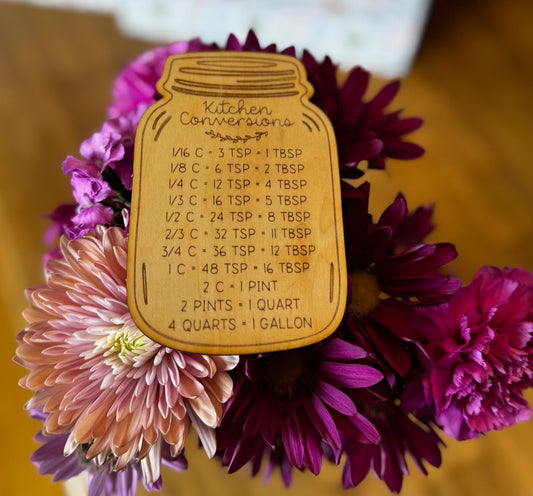 Kitchen
Conversions
1/16 C = 3 TSP = 1 TBSP
1/8 C = 6 TSP = 2 TBSP
1/4 C = 12 TSP = 4 TBSP
1/3 C = 16 TSP = 5 TBSP
1/2 C = 24 TSP = 8 TBSP
2/3 C = 32 TSP = 11 TBSP
3/4 C = 36 TSP = 12 TBSP
1 C = 48 TSP = 16 TBSP
2 C = 1 PINT
2 PINTS = 1 QUART
4 QUARTS = 1 GALLON